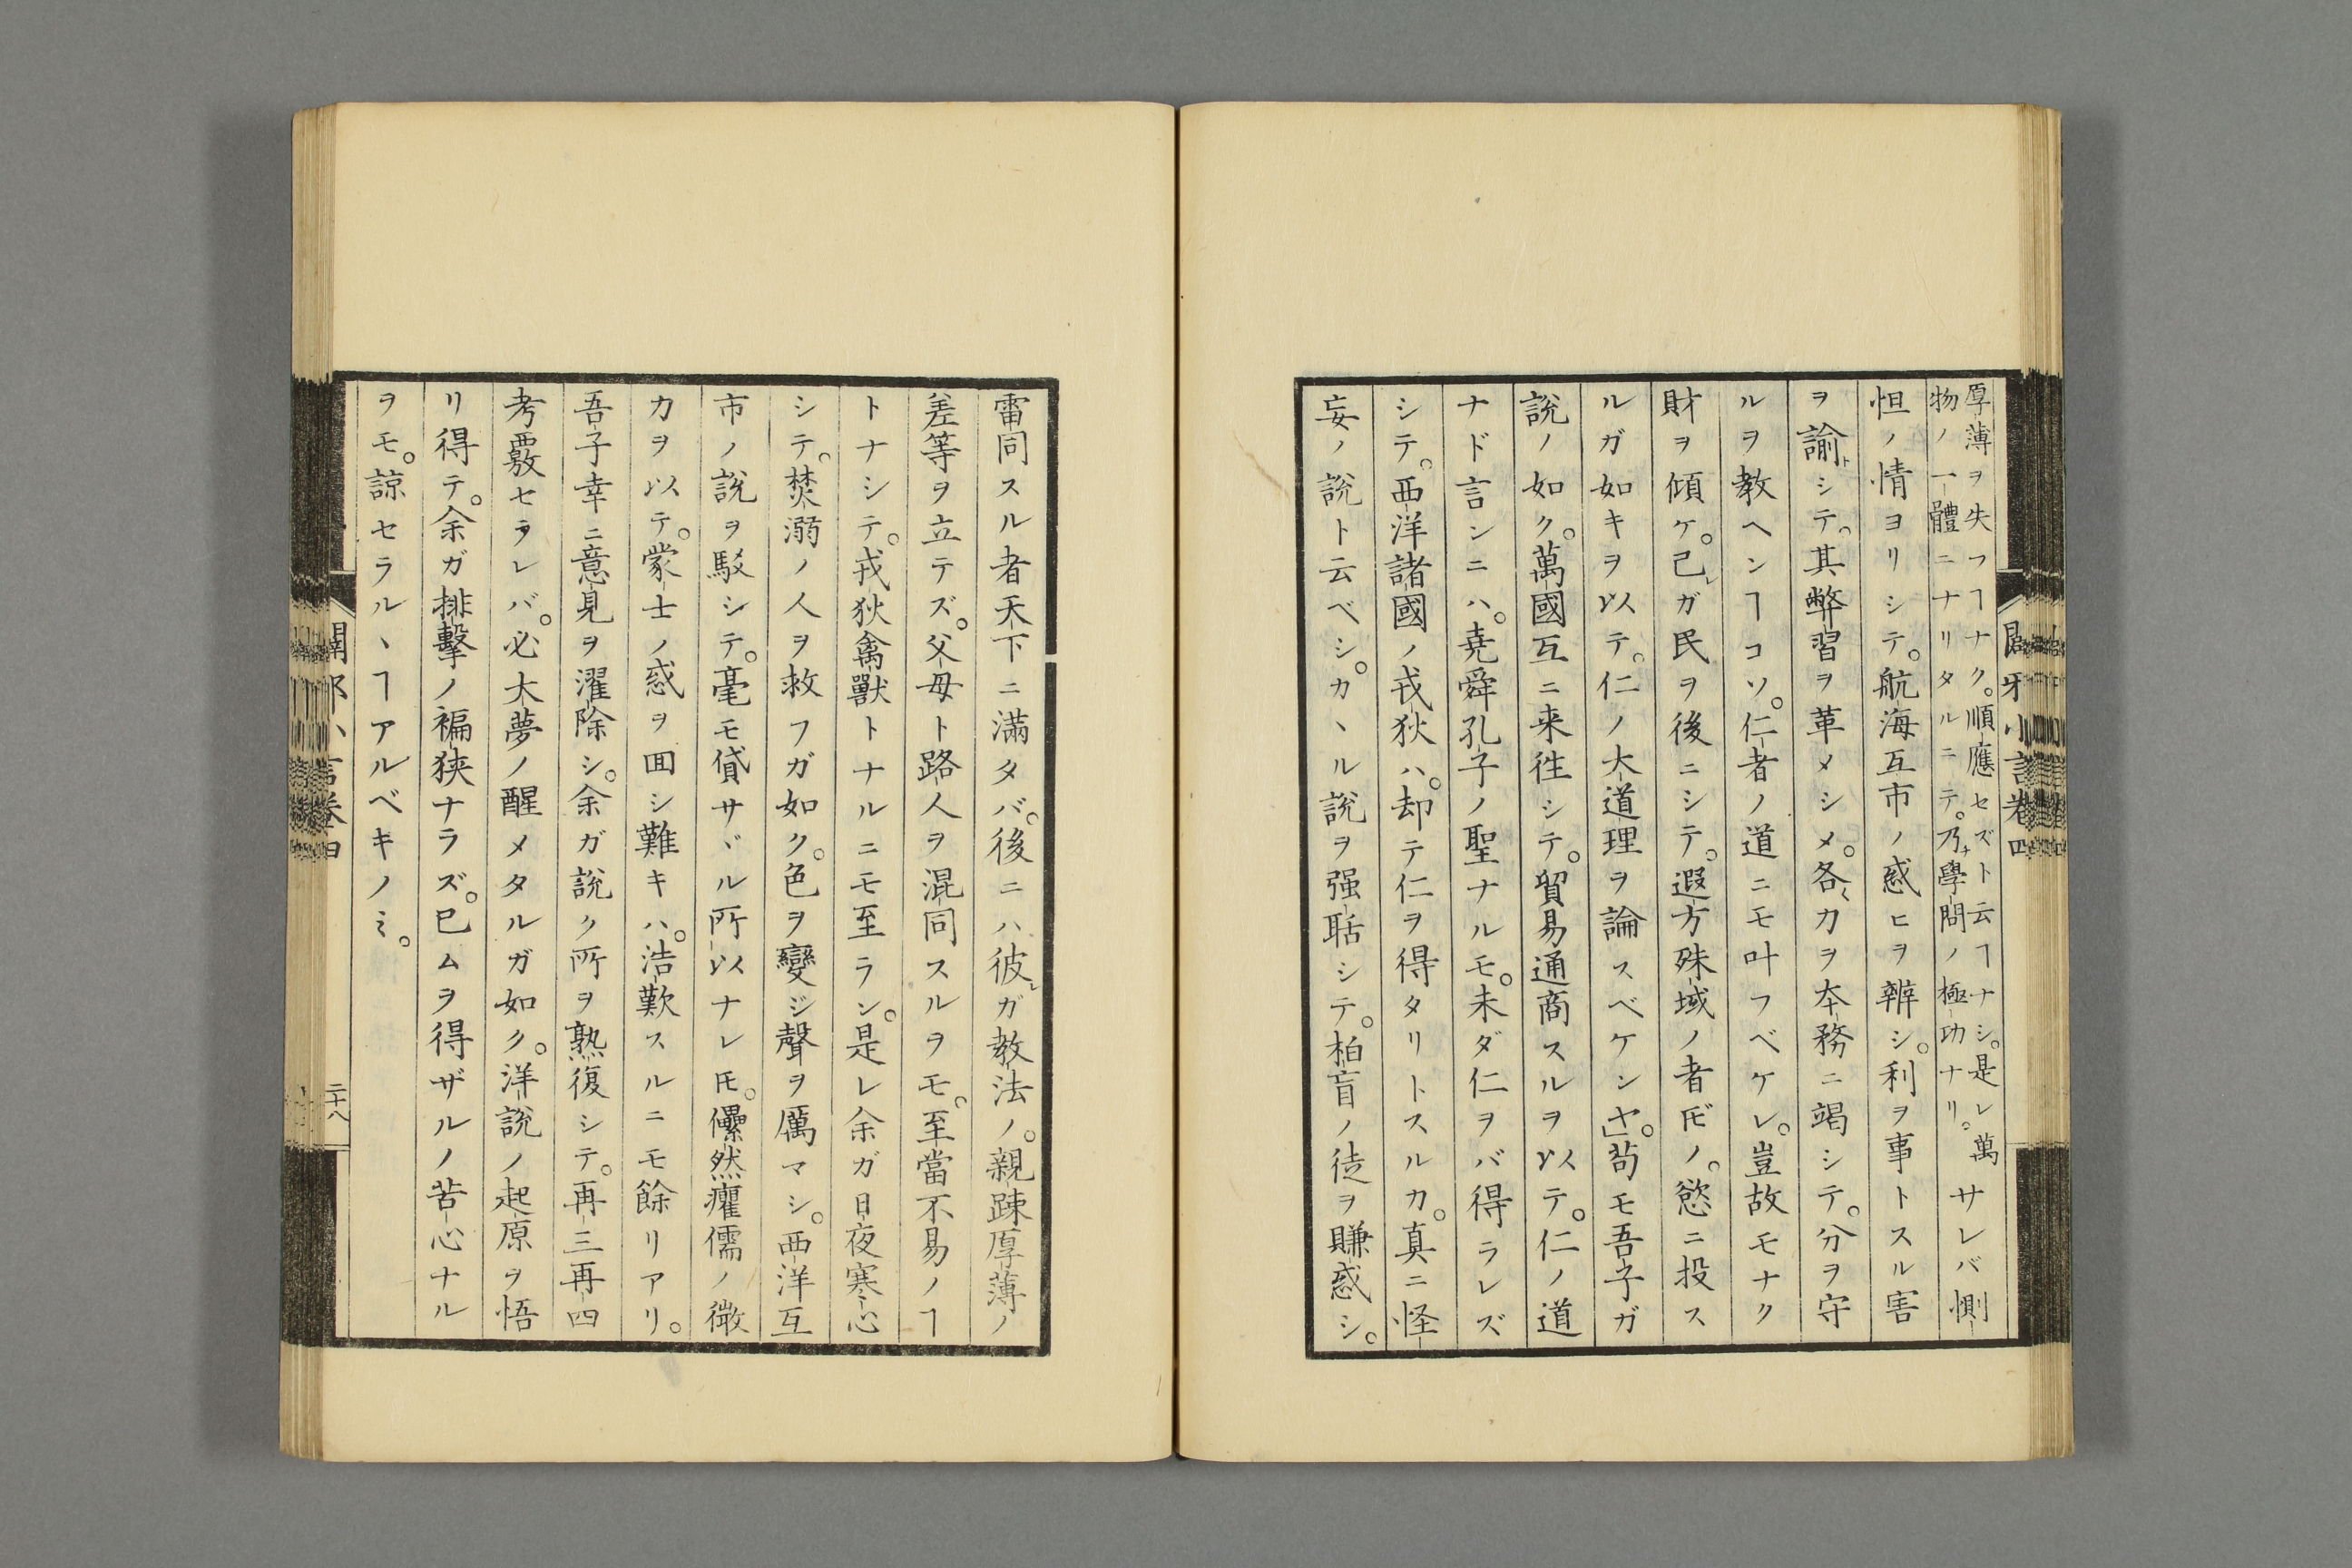 厚薄ヲ失フヿナク。順應セズト云ヿナシ。是レ萬
物ノ一體ニナリタルニテ。乃ナ學問ノ極功ナリ。
サレバ惻
怛ノ情ヨリシテ。航海互市ノ惑ヒヲ辨シ。利ヲ事トスル害
ヲ諭シテ。其弊習ヲ革メシメ。各〱力ヲ本務ニ竭シテ。分ヲ守
ルヲ教ヘンヿコソ。仁者ノ道ニモ叶フベケレ。豈故モナク
財ヲ傾ケ。己レガ民ヲ後ニシテ。遐方殊域ノ者𪜈ノ。慾ニ投ス
ルガ如キヲ以テ。仁ノ大道理ヲ論スベケンヤ」。苟モ吾子ガ
說ノ如ク。萬國互ニ来徃シテ。貿易通商スルヲ以テ。仁ノ道
ナド言ンニハ。堯舜孔子ノ聖ナルモ。未ダ仁ヲバ得ラレズ
シテ。西洋諸國ノ戎狄ハ。却テ仁ヲ得タリトスルカ。真ニ怪
妄ノ說ト云ベシ。カヽル說ヲ强聒シテ。柏盲ノ徒ヲ賺惑シ。
闢邪小言卷四
雷同スル者天下ニ滿タバ。後ニハ彼レガ教法ノ。親踈厚薄ノ
差等ヲ立テズ。父母ト路人ヲ混同スルヲモ。至當不易ノヿ
トナシテ。戎狄禽獸トナルニモ至ラン。是レ余ガ日夜寒心
シテ。焚溺ノ人ヲ救フガ如ク。色ヲ變ジ聲ヲ厲マシ。西洋互
市ノ說ヲ駁シテ。毫モ貸サヾル所以ナレ𪜈。儽然癯儒ノ微
力ヲ以テ。蒙士ノ惑ヲ囬シ難キハ。浩歎スルニモ餘リアリ。
吾子幸ニ意見ヲ濯除シ。余ガ說ク所ヲ熟復シテ。再三再四
考覈セラレバ。必大夢ノ醒メタルガ如ク。洋說ノ起原ヲ悟
リ得テ。余ガ排擊ノ褊狹ナラズ。已ムヲ得ザルノ苦心ナル
ヲモ。諒セラルヽヿアルベキノミ。
闢邪小言卷四
二十八